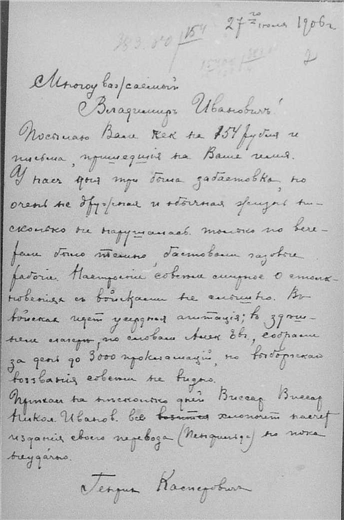 27го июля 1906 г
2
Многоуважаемый
Владимиръ Ивановичъ!
Посылаю Вам чек на 154 рубля и
письма, пришедшія на Ваше имя.
У насъ дня три была забастовка, но
очень не дружная и обычная жизнь ни-
сколько не нарушалась. только по вече-
рам было темно, бастовали газовые
рабочіе. Настроеніе совсем мирное о столк-
новеніях съ войсками не слышно. Въ
войсках идет усердная агитація; въ
лагере, по словам Алек Ев, собрали
за день до 3000 прокламацій, но выборгскаго
воззванія совсем не видно.
Пріехал на нѣсколько дней Виссар Виссар
Никол. Иванов. всё хлопочет насчет
изданія своего перевода но пока
неудачно.
Генрик Касперович